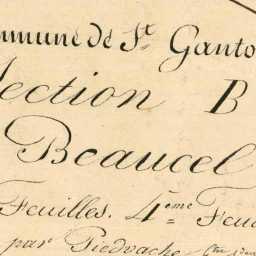 mmune de St Ganto
Section B
Beaucel
Feuilles. 4ème Feui
par Piedvache